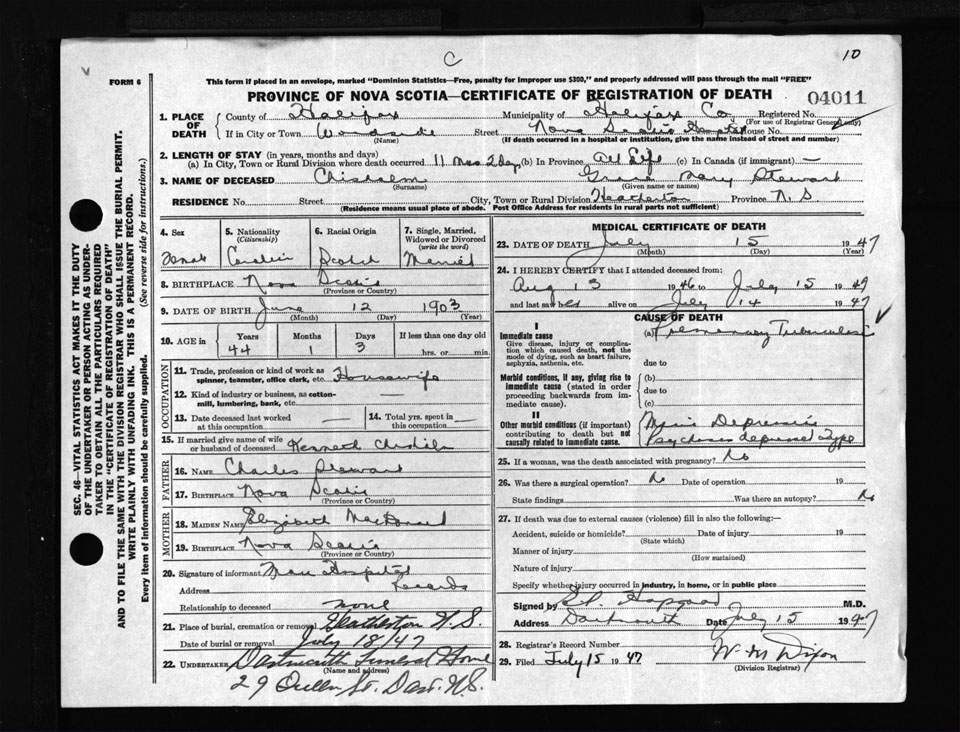 C
10
FORM 6
This form if placed in an envelope, marked "Dominion Statistics—Free, penalty for improper use $300," and properly addressed will pass through the mail "FREE"
PROVINCE OF NOVA SCOTIA—CERTIFICATE OF REGISTRATION OF DEATH
04011
SEC. 46—VITAL STATISTICS ACT MAKES IT THE DUTY
OF THE UNDERTAKER OR PERSON ACTING AS UNDER-
TAKER TO OBTAIN ALL THE PARTICULARS REQUIRED
IN THE "CERTIFICATE OF REGISTRATION OF DEATH"
AND TO FILE THE SAME WITH THE DIVISION REGISTRAR WHO SHALL ISSUE THE BURIAL PERMIT.
WRITE PLAINLY WITH UNFADING INK. THIS IS A PERMANENT RECORD.
Every item of Information should be carefully supplied. (See reverse side for instructions.)
1. PLACE OF DEATH
County of Halifax Municipality of Halifax Co. Registered No.
(For use of Registrar General only)
If in City or Town Woodside Street Nova Scotia Hospital House No.
(Name) (If death occurred in a hospital or institution, give the name instead of street and number)
2. LENGTH OF STAY (in years, months and days)
(a) In City, Town or Rural Division where death occurred 11 Mos 2 Day (b) In Province All Life (c) In Canada (if immigrant) —
3. NAME OF DECEASED Chisholm Mary Stewart
(Surname) (Given name or names)
RESIDENCE No. Street City, Town or Rural Division Heatherton Province N.S
(Residence means usual place of abode. Post Office Address for residents in rural parts not sufficient)
4. Sex
Female
5. Nationality
(Citizenship)
Canadian
6. Racial Origin
Scotch
7. Single, Married,
Widowed or Divorced
(write the word)
Married
8. BIRTHPLACE Nova Scotia
(Province or Country)
9. DATE OF BIRTH June 12 1903
(Month) (Day) (Year)
10. AGE in
Years Months Days If less than one day old
44 1 3 hrs. or min.
OCCUPATION
11. Trade, profession or kind of work as
spinner, teamster, office clerk, etc. Housewife
12. Kind of industry or business, as cotton-
mill, lumbering, bank, etc. —
13. Date deceased last worked
at this occupation
14. Total yrs. spent in
this occupation
15. If married give name of wife
or husband of deceased Kenneth Chisholm
FATHER
16. NAME Charles Stewart
17. BIRTHPLACE Nova Scotia
(Province or Country)
MOTHER
18. MAIDEN NAME Elizabeth MacDonald
19. BIRTHPLACE Nova Scotia
(Province or Country)
20. Signature of informant Hospital
Address Records
Relationship to deceased none
21. Place of burial, cremation or removal Heatherton N.S.
Date of burial or removal July 18/47
22. UNDERTAKER Dartmouth Funeral Home
(Name and address)
29 Queen St. Dart. N.S.
MEDICAL CERTIFICATE OF DEATH
23. DATE OF DEATH July 15 1947
(Month) (Day) (Year)
24. I HEREBY CERTIFY that I attended deceased from:
Aug 13 1946 to July 15 1947
and last saw her alive on July 14 1947
CAUSE OF DEATH
I
Immediate cause
Give disease, injury or complica-
tion which caused death, not the
mode of dying, such as heart failure,
asphyxia, asthenia, etc.
(a) Pulmonary Tuberculosis
due to
Morbid conditions, if any, giving rise to
immediate cause (stated in order
proceeding backwards from im-
mediate cause).
(b)
due to
(c)
II
Other morbid conditions (if important)
contributing to death but not
causally related to immediate cause.
Manic Depressive
Psychosis depressed Type
25. If a woman, was the death associated with pregnancy? No
26. Was there a surgical operation? No Date of operation 19
State findings Was there an autopsy? No
27. If death was due to external causes (violence) fill in also the following:—
Accident, suicide or homicide? Date of injury 19
(State which)
Manner of injury
(How sustained)
Nature of injury
Specify whether injury occurred in industry, in home, or in public place
Signed by Hapgood M.D.
Address Dartmouth Date July 15 1947
28. Registrar's Record Number
29. Filed July 15 1947 W. M Dixon
(Division Registrar)